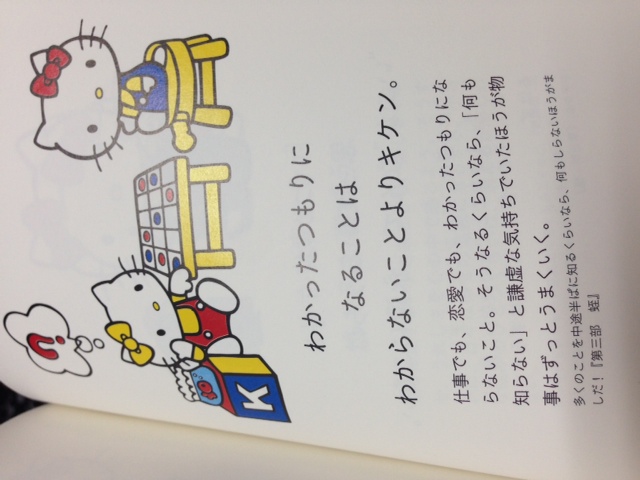 わかったつもりに
なることは
わからないことよりキケン。
仕事でも、恋愛でも、わかったつもりにな
らないこと。そうなるくらいなら、「何も
知らない」と謙虚な気持ちでいたほうが物
事はずっとうまくいく。
多くのことを中途半ぱに知るくらいなら、何もしらないほうがま
しだ！『第三部　蛭』
?
K